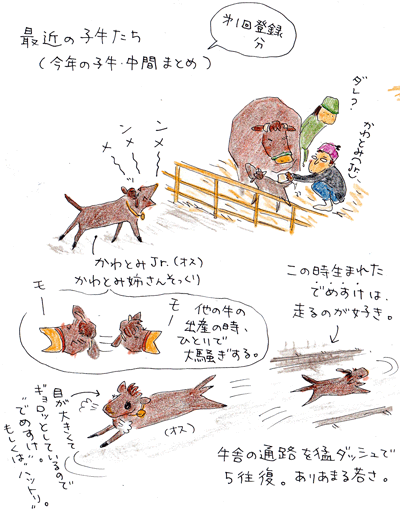 最近の子牛たち
(今年の子牛・中間まとめ)
第1回登録
分
ダレ?
かわとみ(Jr.)
ンメ〜
ンメ〜
メ〜
かわとみJr.(オス)
かわとみ姉さんそっくり
モ
モ
他の牛の
出産の時、
ひとりで
大騒ぎする。
この時生まれた
でめすけは、
走るのが好き。
目が大きくて
ギョロッとしているので
"でめすけ"。
もしくは"ハットリ"。
(オス)
牛舎の通路を猛ダッシュで
5往復。ありあまる若さ。